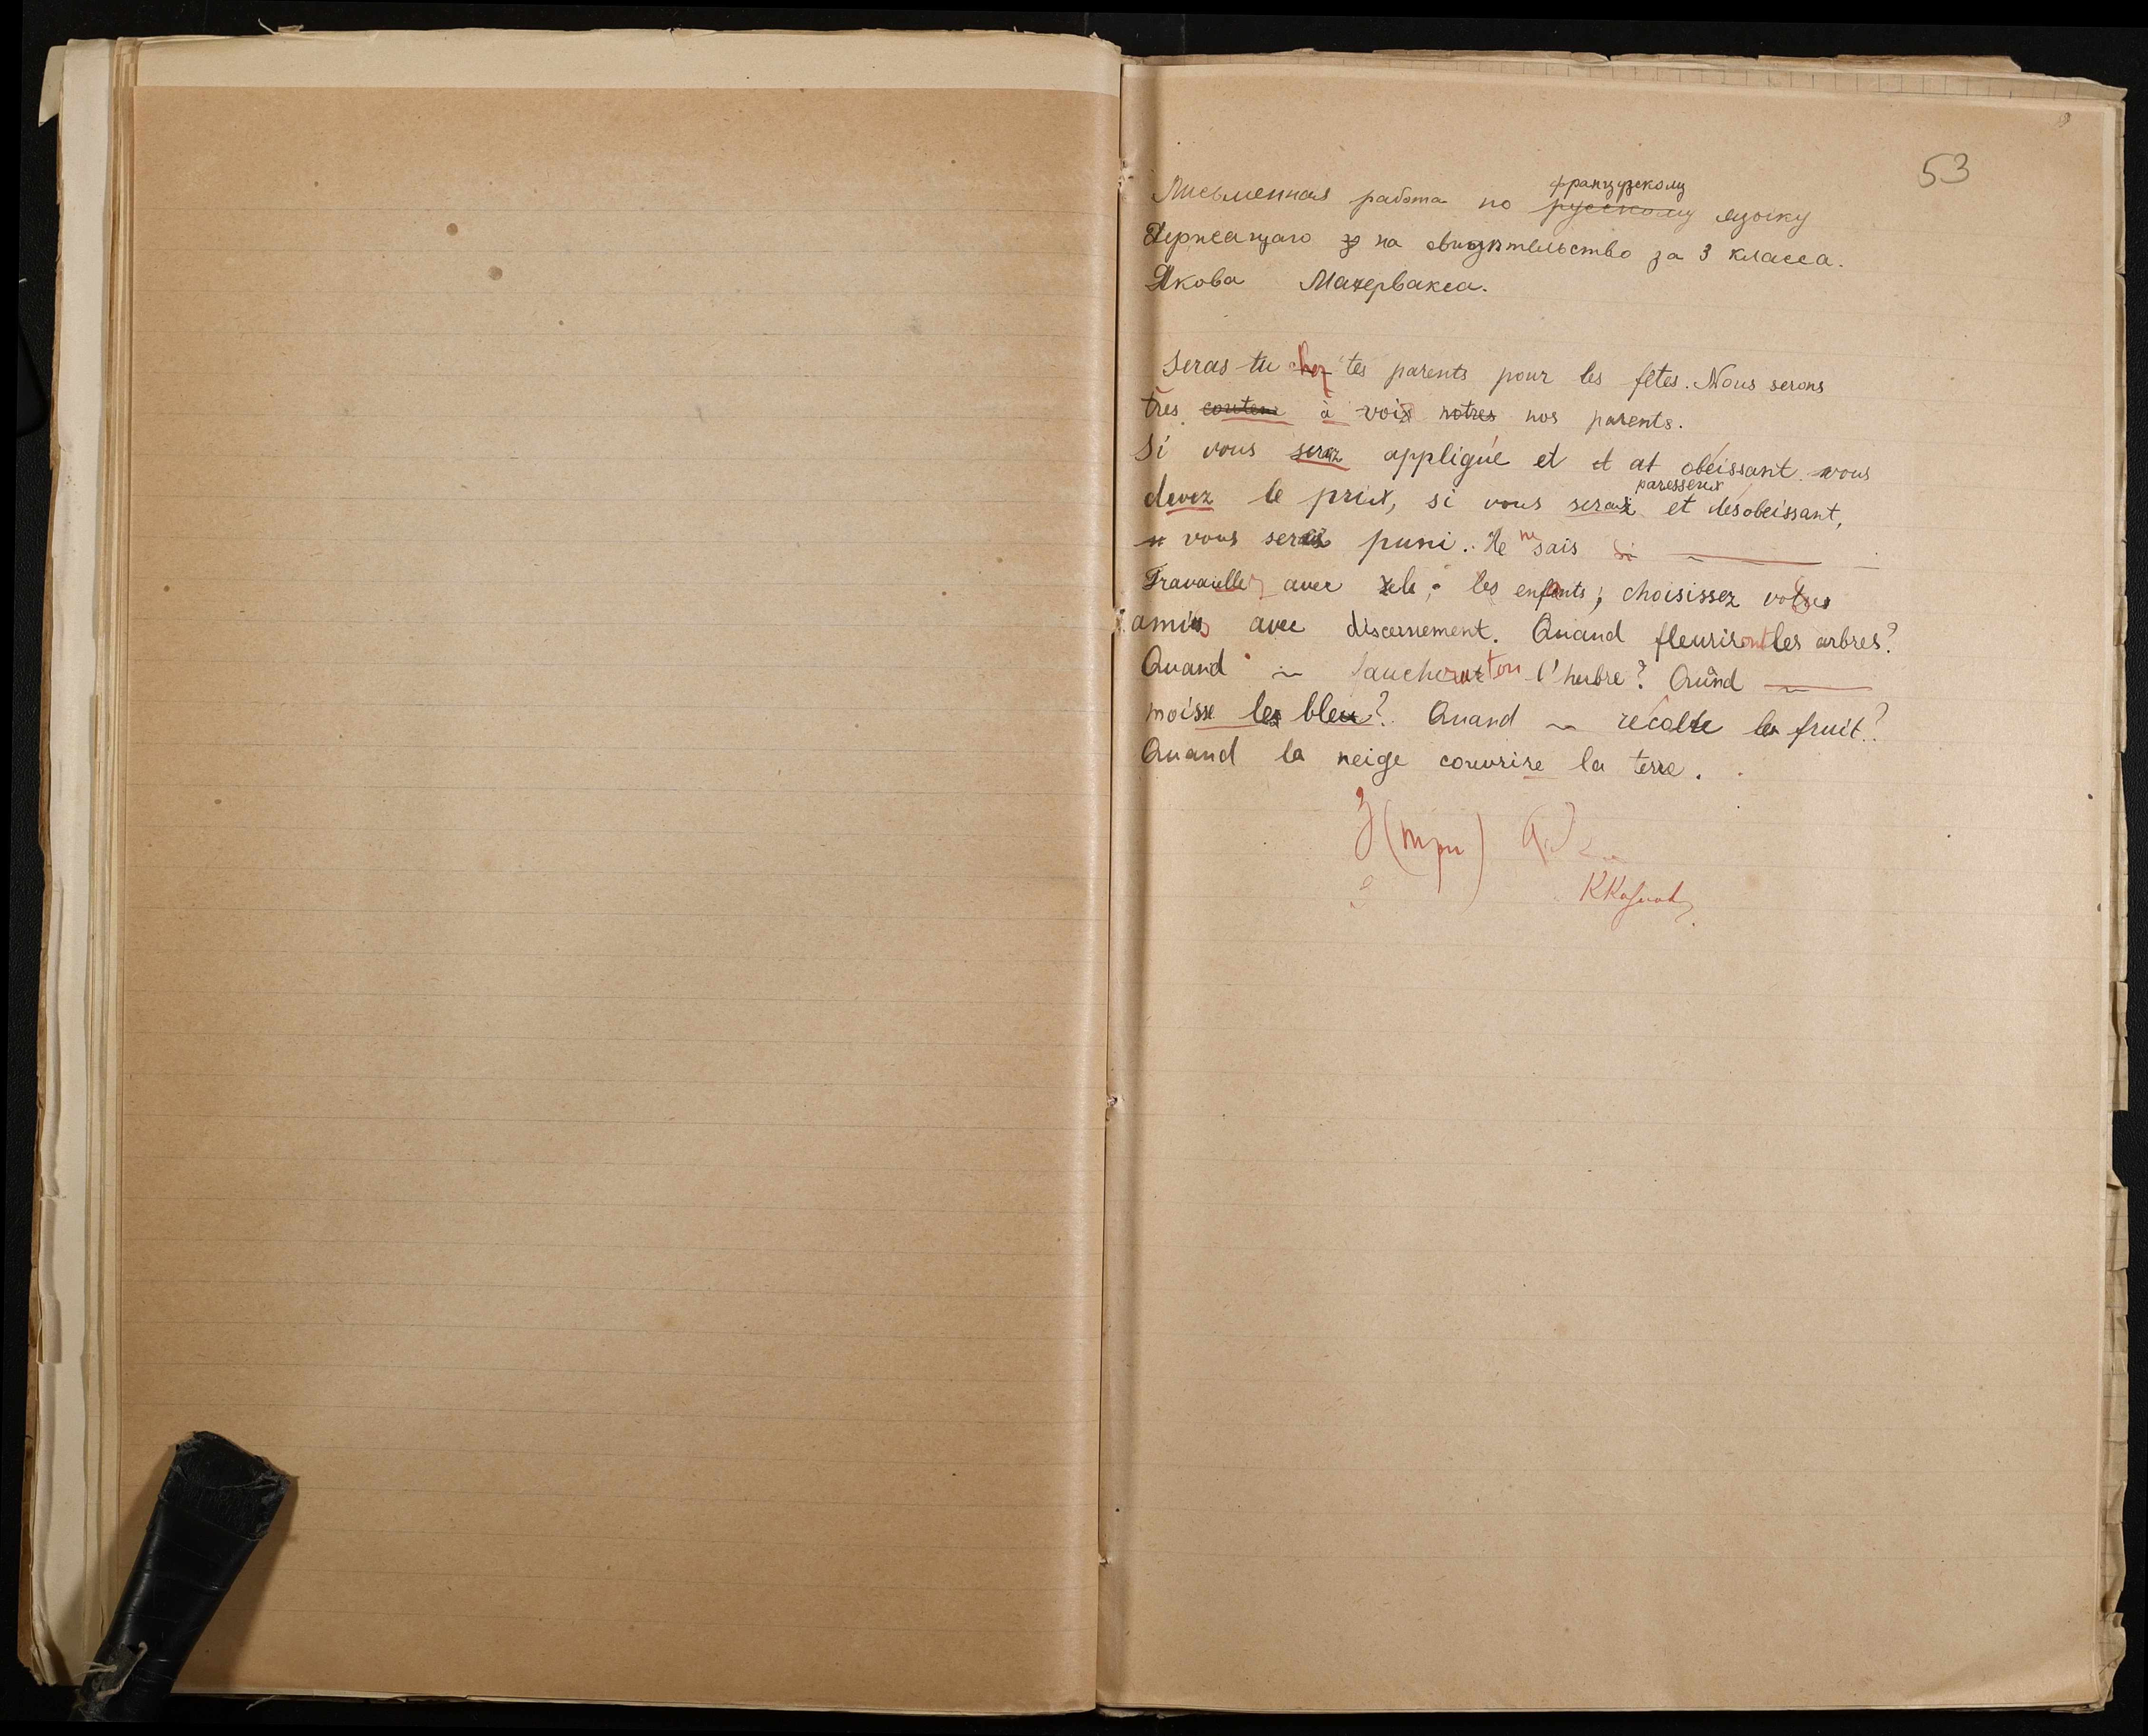 53
Письменная работа по французскому языку
Держащаго на свидѣтельство за 3 класса.
Якова Мазервакса.
Seras tu chez tes parents pour les fêtes. Nous serons
très à voir nos parents.
Si vous serez appliqué et et at obéissant vous
devez le prix, si vous seraiz paresseux et désobéissant,
vous serais puni. Je ne sais si
Travaillez avec zele, les enfants; choisissez votres
amis avec discernement. Quand fleuriront les arbres?
Quand fauchera ton l'herbre? Quand
moisse les bleu? Quand recolte les fruit?
Quand la neige couvrire la terre.
3 (три)